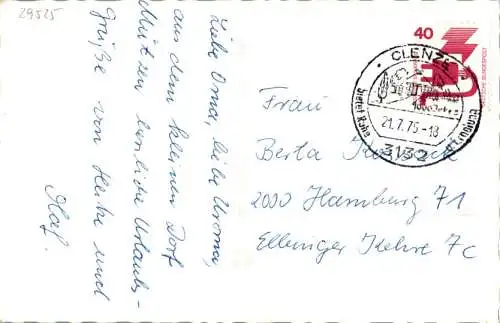 29525
Liebe Oma, liebe Uroma,
aus dem kleinen Dorf
Mützen herzliche Urlaubs-
grüße von Heike und
Olaf.
40
DEUTSCHE BUNDESPOST
CLENZE
21.7.75-18
3132
Frau
Berta
2000 Hamburg 71
Ellbinger Kehre 7c